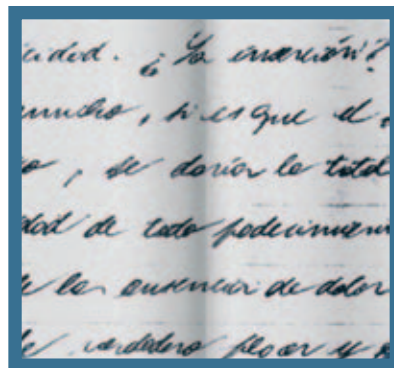 cidad. ¿La inserción?
mucho, si es que el
o, se daría la total
dad de todo padecimien
e la ausencia de dolor
verdadero placer y